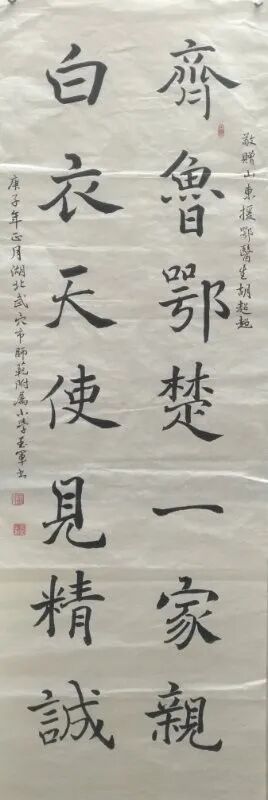 敬贈山東援鄂醫生胡超超
齊魯鄂楚一家親
白衣天使見精誠
庚子年正月湖北武穴市師範附屬小學 軍书